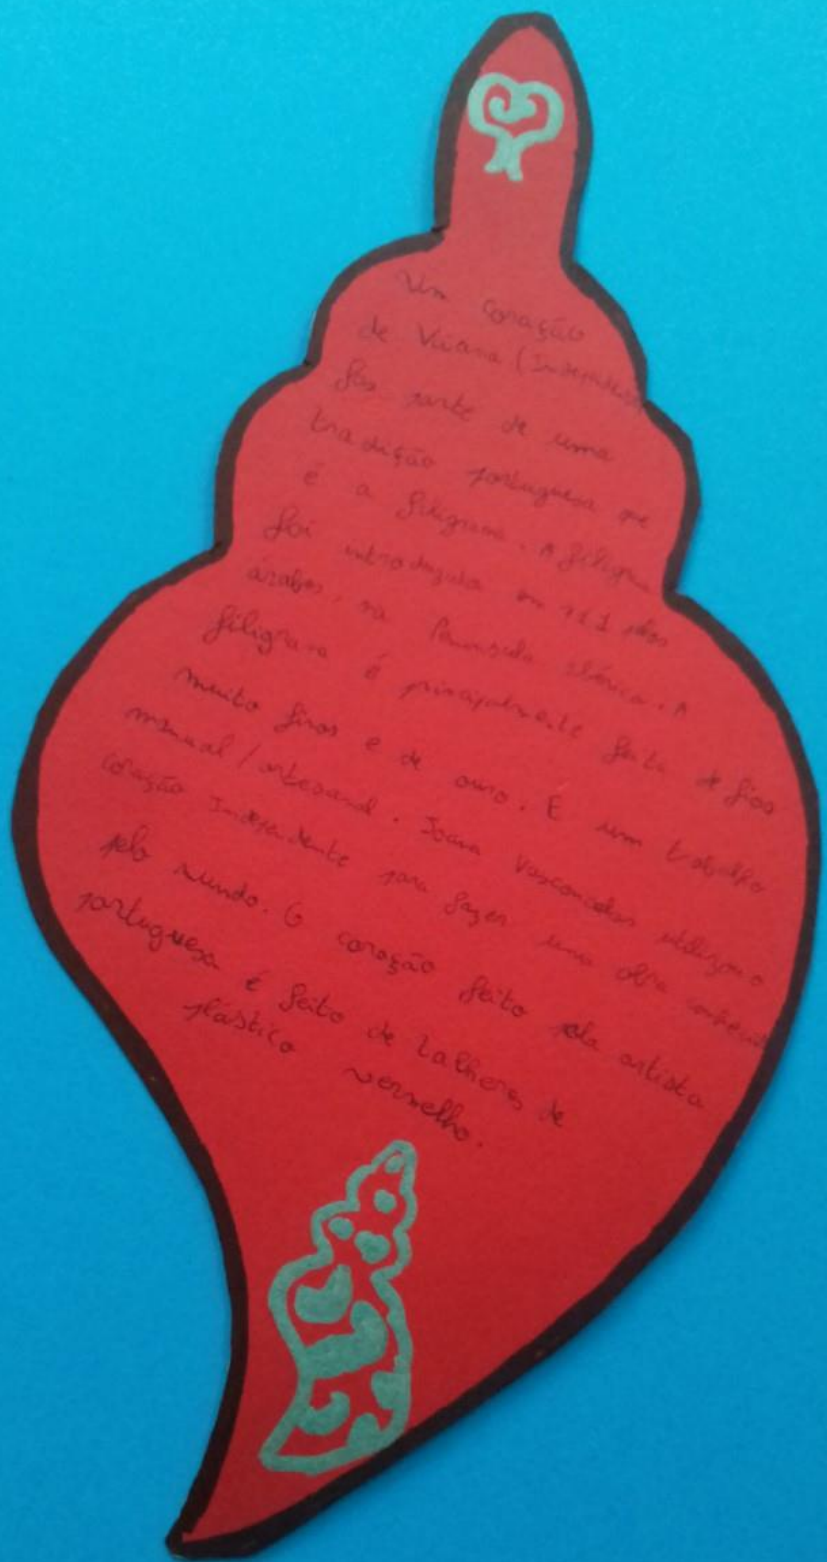 Um coração
de Viana (Independente
faz parte de uma
tradição portuguesa que
é a filigrana. A filigrana
foi introduzida em 711 pelos
árabes, na Península Ibérica. A
filigrana é principalmente feita de fios
muito finos e de ouro. É um trabalho
manual / artesanal. Joana Vasconcelos utilizou o
coração Independente para fazer uma obra conhecida
pelo mundo. O coração feito pela artista
portuguesa é feito de talheres de
plástico vermelho.